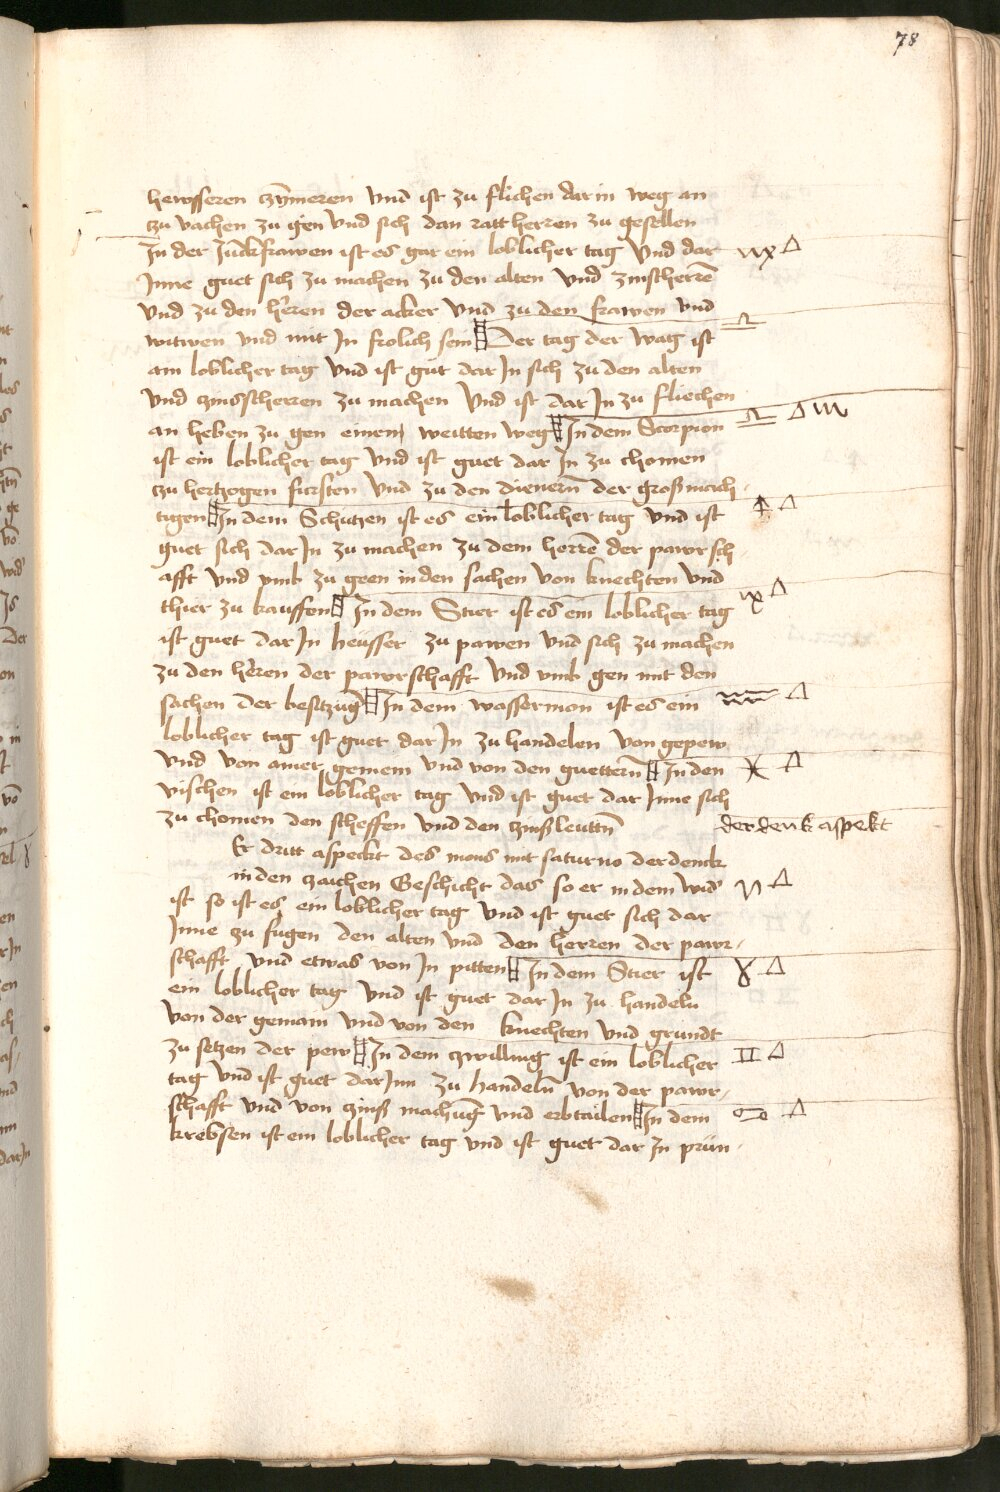 78
hewsseren zymeren vnd ist zu flichen darin weg an
zu vachen zu gen vnd sich dan ratt herren zu gesellen
In der Junckfrawen ist es gar ein loblicher tag vnd dar ♍ △
Inne guet sich zu machen zu den alten vnd zinsherrē
vnd zu den herren der acker vnd zu den frawen vnd
witwen vnd mit In frolich sein Der tag der wag ist ♎
am loblicher tag vnd ist gut dar In sich zu den alten
vnd czinsscherren zu machen vnd ist dar In zu fliechen
an heben zu gen einen weitten weg In dem Scorpion ♎ △ ♏
ist ein loblicher tag vnd ist guet dar In zu chomen
czu hertzogen fursten vnd zu den dienern der großmach
tigen In dem Schutzen ist es ein loblicher tag vnd ist ♐ △
guet sich dar In zu machen zu dem herrē der pawrsch
afft vnd vmb zu geen in den sachen von knechten vnd
thier zu kauffen In dem Stier ist es ein loblicher tag △
ist guet dar In heusser zu pawen vnd sich zu machen
zu den herren der pawrschafft vnd vmb gen mit den
sachen der besitzūg In dem wasserman ist es ein ♒ △
loblicher tag ist guet dar In zu handelen von gepew
vnd von ainer gemein vnd von den guettern In den ♓ △
vischen ist ein loblicher tag vnd ist guet dar Inne sich
zu chomen den scheffen vnd den czinßleuttn
der denk aspekt
Er dritt aspeckt des mons mit saturno der denck
in den zaichen Geschicht das so er in dem wid' ♈ △
ist so ist es ein loblicher tag vnd ist guet sich dar
Inne zu fugen den alten vnd den herren der pawr
schafft vnd etwas von In pitten In dem Stier ist ♉ △
ein loblicher tag vnd ist guet dar In zu handeln
von der gemain vnd von den knechten vnd grundt
zu setzen der pew In dem zwilling ist ein loblicher ♊ △
tag vnd ist guet dar Inn zu handeln von der pawr
schafft vnd von czinß machūg vnd erbtailen In dem ♋ △
krebsen ist ein loblicher tag vnd ist guet dar In prün